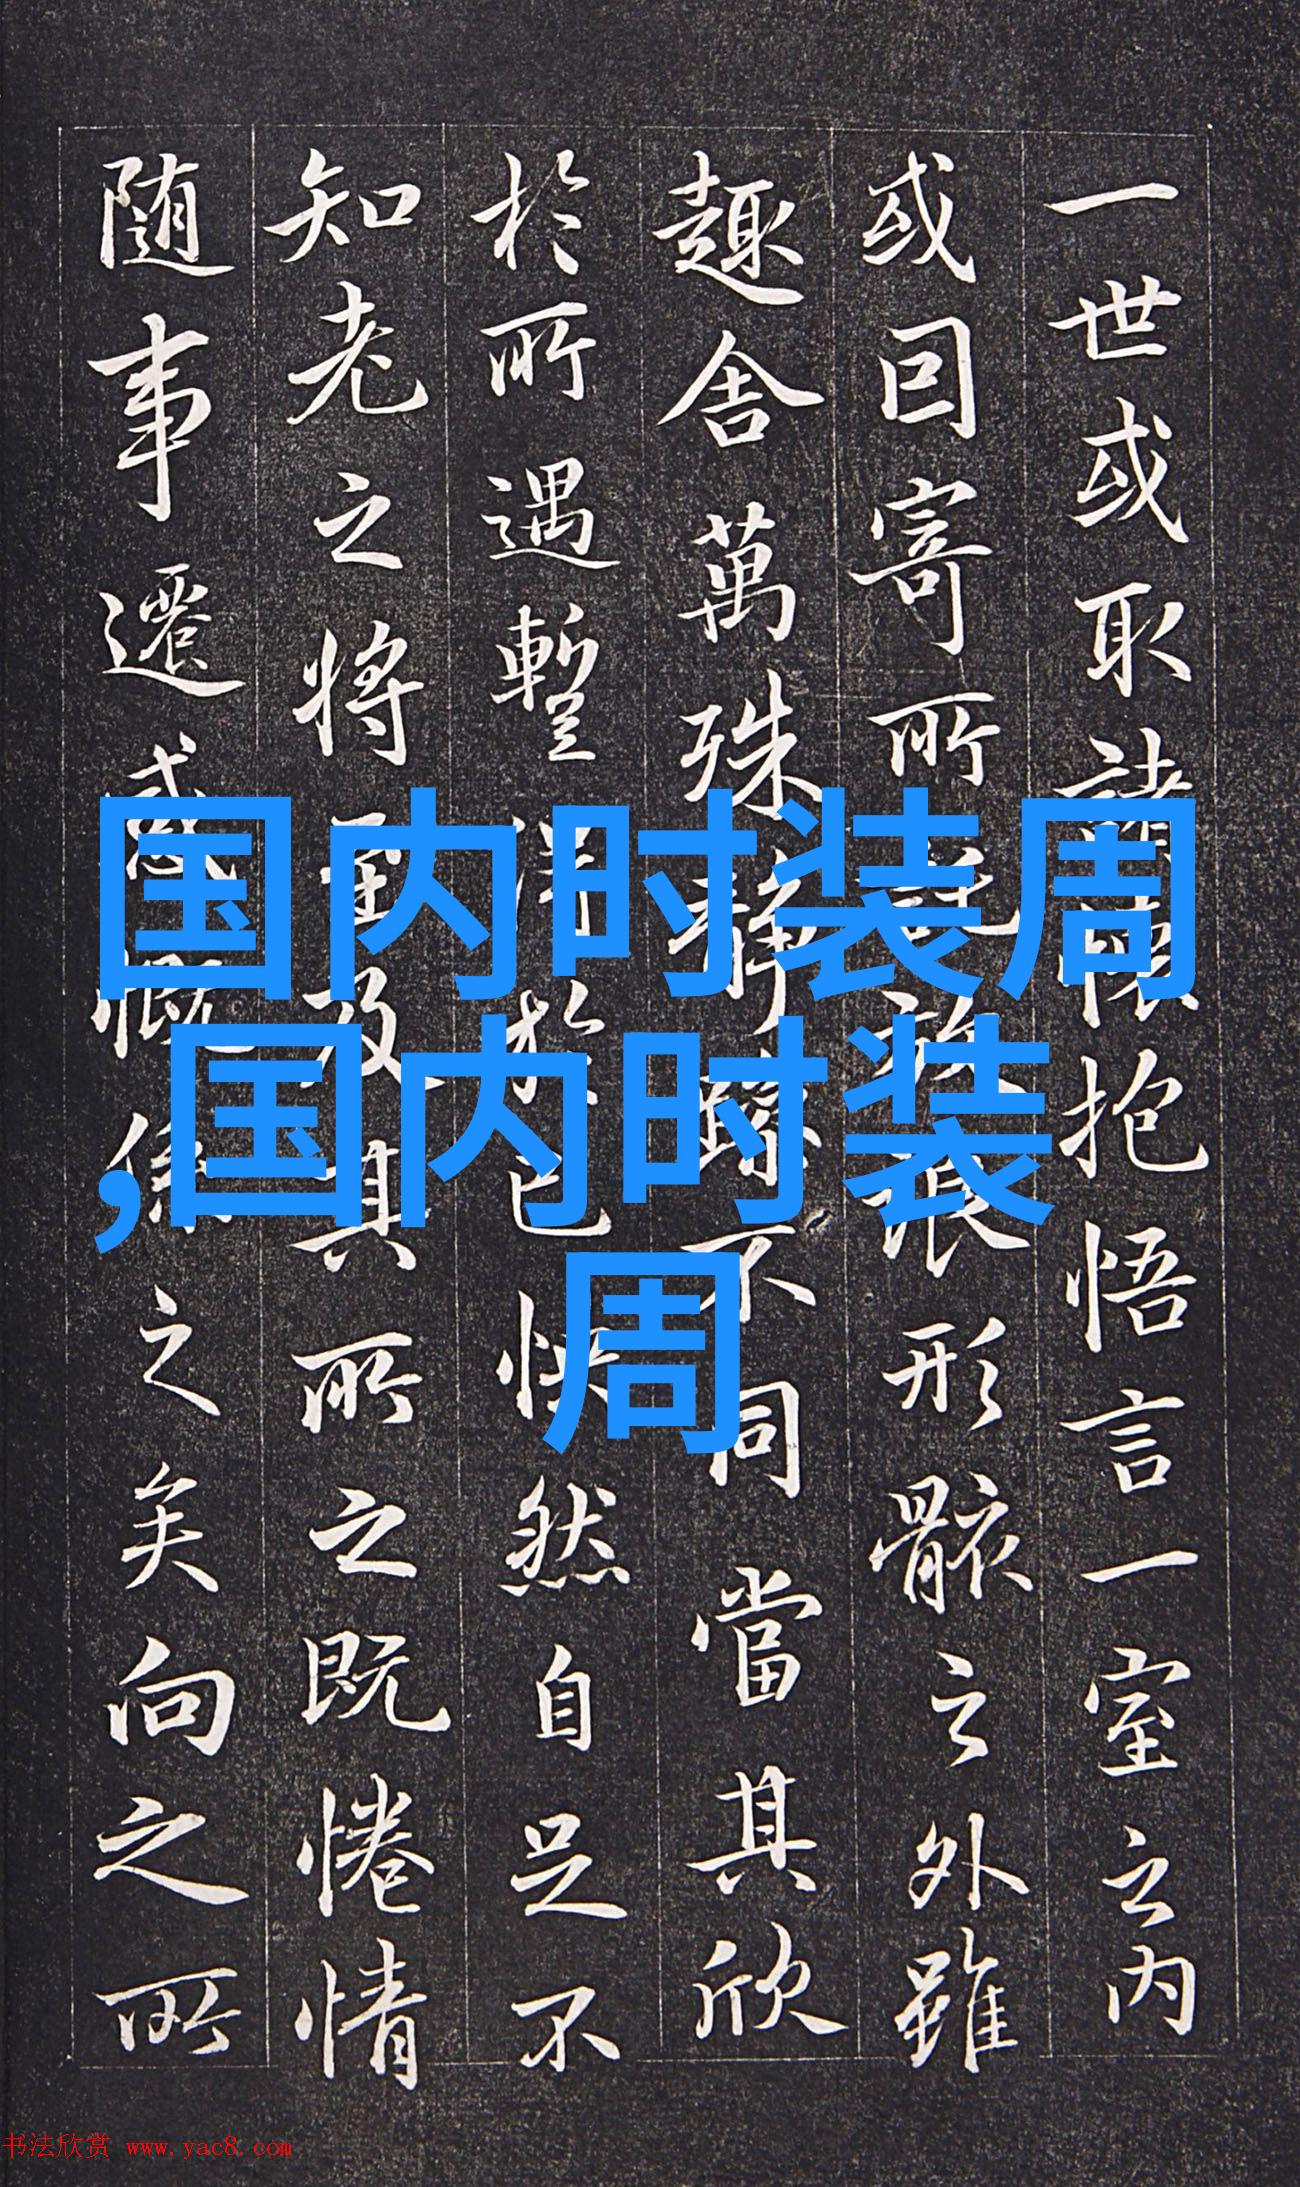 一世或取諸懷抱悟言一室之內
或囙寄所託放浪形骸之外雖
趣舍萬殊靜躁不同當其欣
於所遇暫得於己快然自足不
知老之將至及其所之既惓情
随事遷感慨係之矣向之所
国内时装周
,国内时装
周
书法欣赏 www.yac8.com